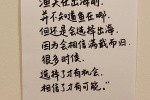 渔夫在出海前，
并不知道鱼在哪，
但还是会选择出海，
因为会相信满载而归，
很多时候，
选择了才有机会，
相信了才有可能。"